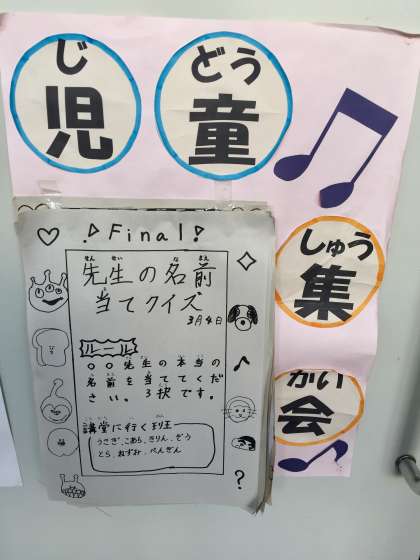 じ
児
どう
童
しゅう
集
かい
会
Final!
せんせい なまえ
先生の名前
当てクイズ
3月4日
ルール
〇〇先生の本当の
名前を当ててくだ
さい。3択です。
講堂に行く班
うさぎ、こあら、きりん、ぞう
とら、ねずみ、ぺんぎん
?